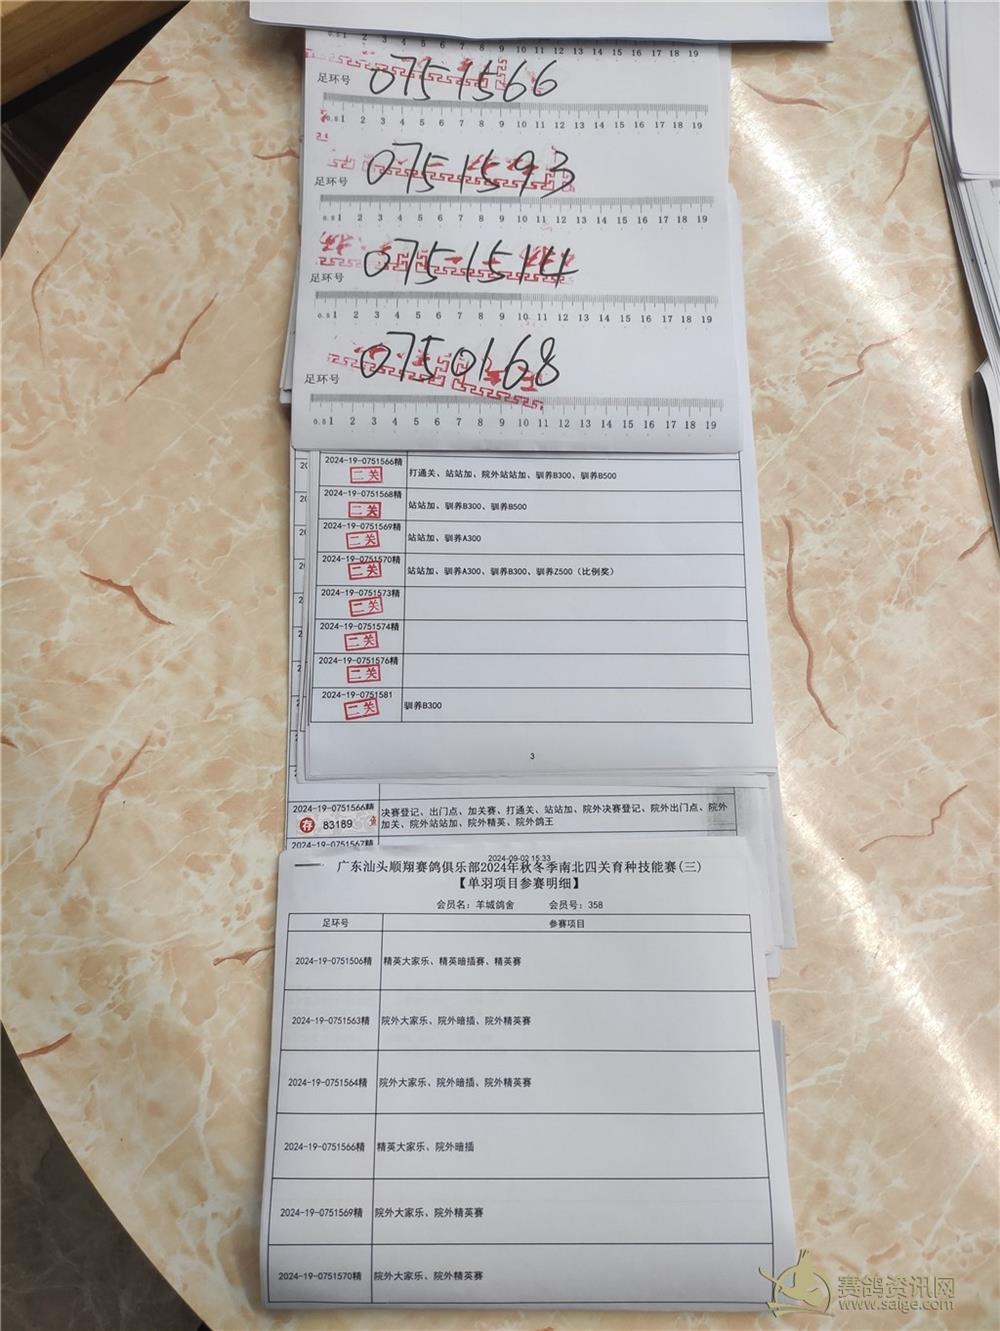 0.8 1 2 3 4 5 6 7 8 9 10 11 12 13 14 15 16 17 18 19
足环号 0751566
0.8 1 2 3 4 5 6 7 8 9 10 11 12 13 14 15 16 17 18 19
足环号 0751593
0.8 1 2 3 4 5 6 7 8 9 10 11 12 13 14 15 16 17 18 19
足环号 0751514
0.8 1 2 3 4 5 6 7 8 9 10 11 12 13 14 15 16 17 18 19
足环号 0750168
0.8 1 2 3 4 5 6 7 8 9 10 11 12 13 14 15 16 17 18 19
2024-19-0751566精
二关 打通关、站站加、院外站站加、驯养B300、驯养B500
2024-19-0751568精
二关 站站加、驯养B300、驯养B500
2024-19-0751569精
二关 站站加、驯养A300
2024-19-0751570精
二关 站站加、驯养A300、驯养B300、驯养Z500（比例奖）
2024-19-0751573精
二关
2024-19-0751574精
二关
2024-19-0751576精
二关
2024-19-0751581
二关 驯养B300
3
2024-19-0751566精 决赛登记、出门点、加关赛、打通关、站站加、院外决赛登记、院外出门点、院外
存 83189 加关、院外站站加、院外精英、院外鸽王
2024-19-0751567精
2024-09-02 15:33
广东汕头顺翔赛鸽俱乐部2024年秋冬季南北四关育种技能赛(三)
【单羽项目参赛明细】
会员名：羊城鸽舍 会员号：358
足环号 参赛项目
2024-19-0751506精 精英大家乐、精英暗插赛、精英赛
2024-19-0751563精 院外大家乐、院外暗插、院外精英赛
2024-19-0751564精 院外大家乐、院外暗插、院外精英赛
2024-19-0751566精 精英大家乐、院外暗插
2024-19-0751569精 院外大家乐、院外精英赛
2024-19-0751570精 院外大家乐、院外精英赛
赛鸽资讯网
www.saige.com